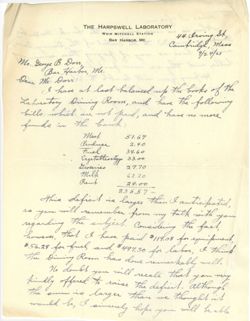 THE HARPSWELL LABORATORY
WEIR MITCHELL STATION
BAR HARBOR, ME.
44 Irving St.
Cambridge, Mass
9/24/25
Mr. George B. Dorr
Bar Harbor, Me.
Dear Mr. Dorr:
I have at last balanced up the books of the
Laboratory Dining Room, and have the following
bills which are not paid, and have no more
funds in the bank:
Meat
Produce 2.40
Fish 34.60
33.00
Groceries 27.70
Milk
Rent 24.00
This deficit is larger than I anticipated,
as you will remember from my talk with you
regarding the subject. Considering the fact,
however, that I have paid for equipment,
for fuel, and for labor, I think
the Dining Room has done remarkably well.
No doubt you will recall that you very
kindly offered to raise the deficit. Although
the sum is larger than we thought it
would be, I sincerely hope you will be able